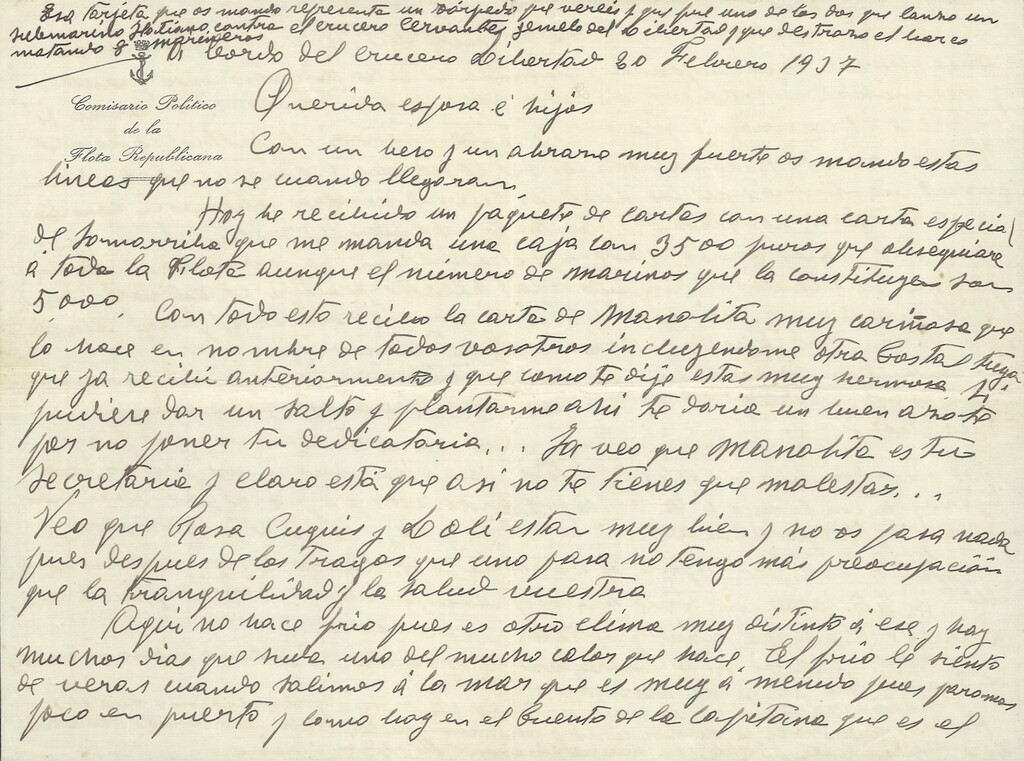 Esa tarjeta que os mando representa un torpedo que vereis y que fue uno de los dos que lanzo un
submarino contra el crucero Cervantes gemelo del Libertad y que destrozo el barco
matando 8 marineros
A bordo del crucero Libertad 20 Febrero 1937
Comisario Político
de la
Flota Republicana
Querida esposa é hijos
Con un beso y un abrazo muy fuerte os mando estas
lineas que no se cuando llegaran.
Hoy he recibido un paquete de cartas con una carta especial
de Somarriba que me manda una caja con 3500 puros que obsequiare
á toda la Flota aunque el número de marinos que la constituyen son
5,000. Con todo esto recibo la carta de Manolita muy cariñosa que
lo hace en nombre de todos vosotros incluyendome otra postal tuya
que ya recibí anteriormente y que como te dije estas muy hermosa. Si
pudiese dar un salto y plantarme ahi te daria un buen azote
por no poner tu dedicatoria... Ya veo que Manolita es tu
secretaria y claro está que asi no te tienes que molestar...
Veo que Rosa Cuquis y Loli estan muy bien y no os pasa nada
pues despues de los tragos que uno pasa no tengo más preocupación
que la tranquilidad y la salud vuestra
Aqui no hace frio pues es otro clima muy distinto á ese y hay
muchos dias que suda uno del mucho calor que hace. El frio le siento
de veras cuando salimos á la mar que es muy á menudo pues paramos
poco en puerto y como hoy en el puente de la Capitana que es el